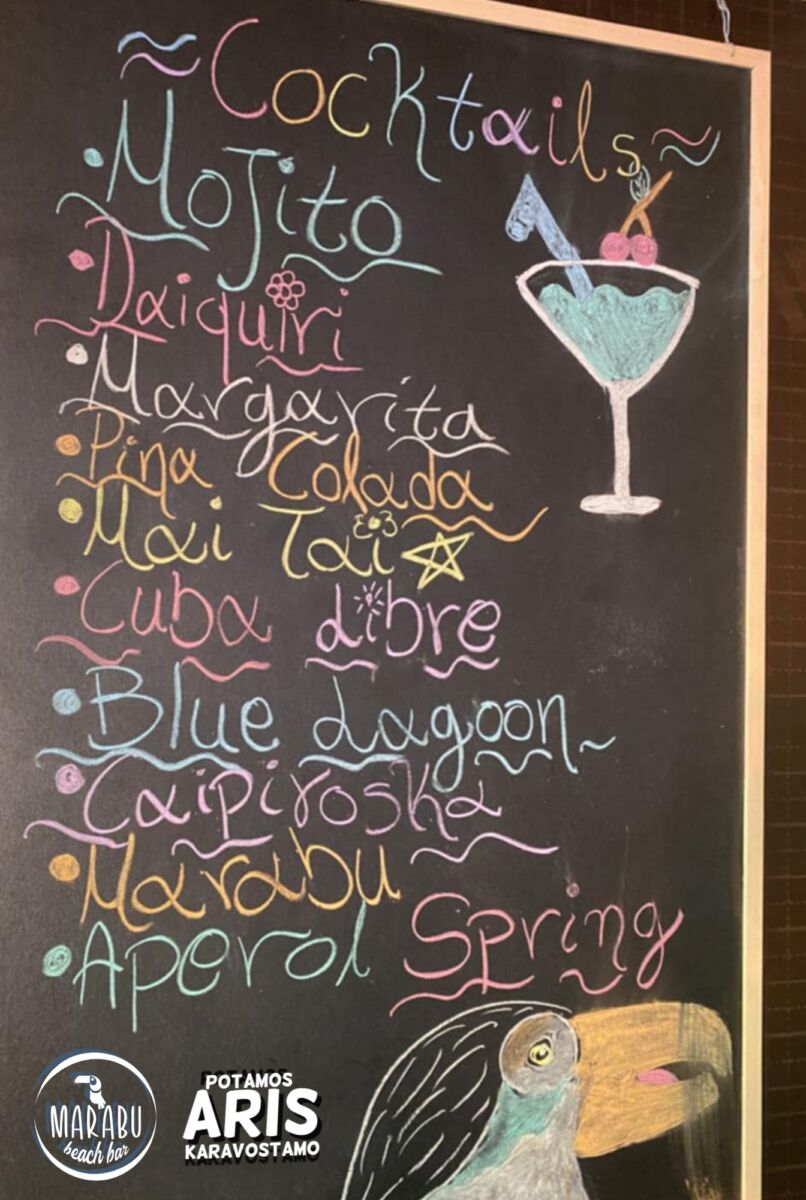 ~Cocktails~
• Mojito
• Daiquiri
• Margarita
• Pina Colada
• Mai Tai
• Cuba Libre
• Blue Lagoon
• Caipiroska
• Marabu
• Aperol Spring
MARABU
beach bar
POTAMOS
ARIS
KARAVOSTAMO